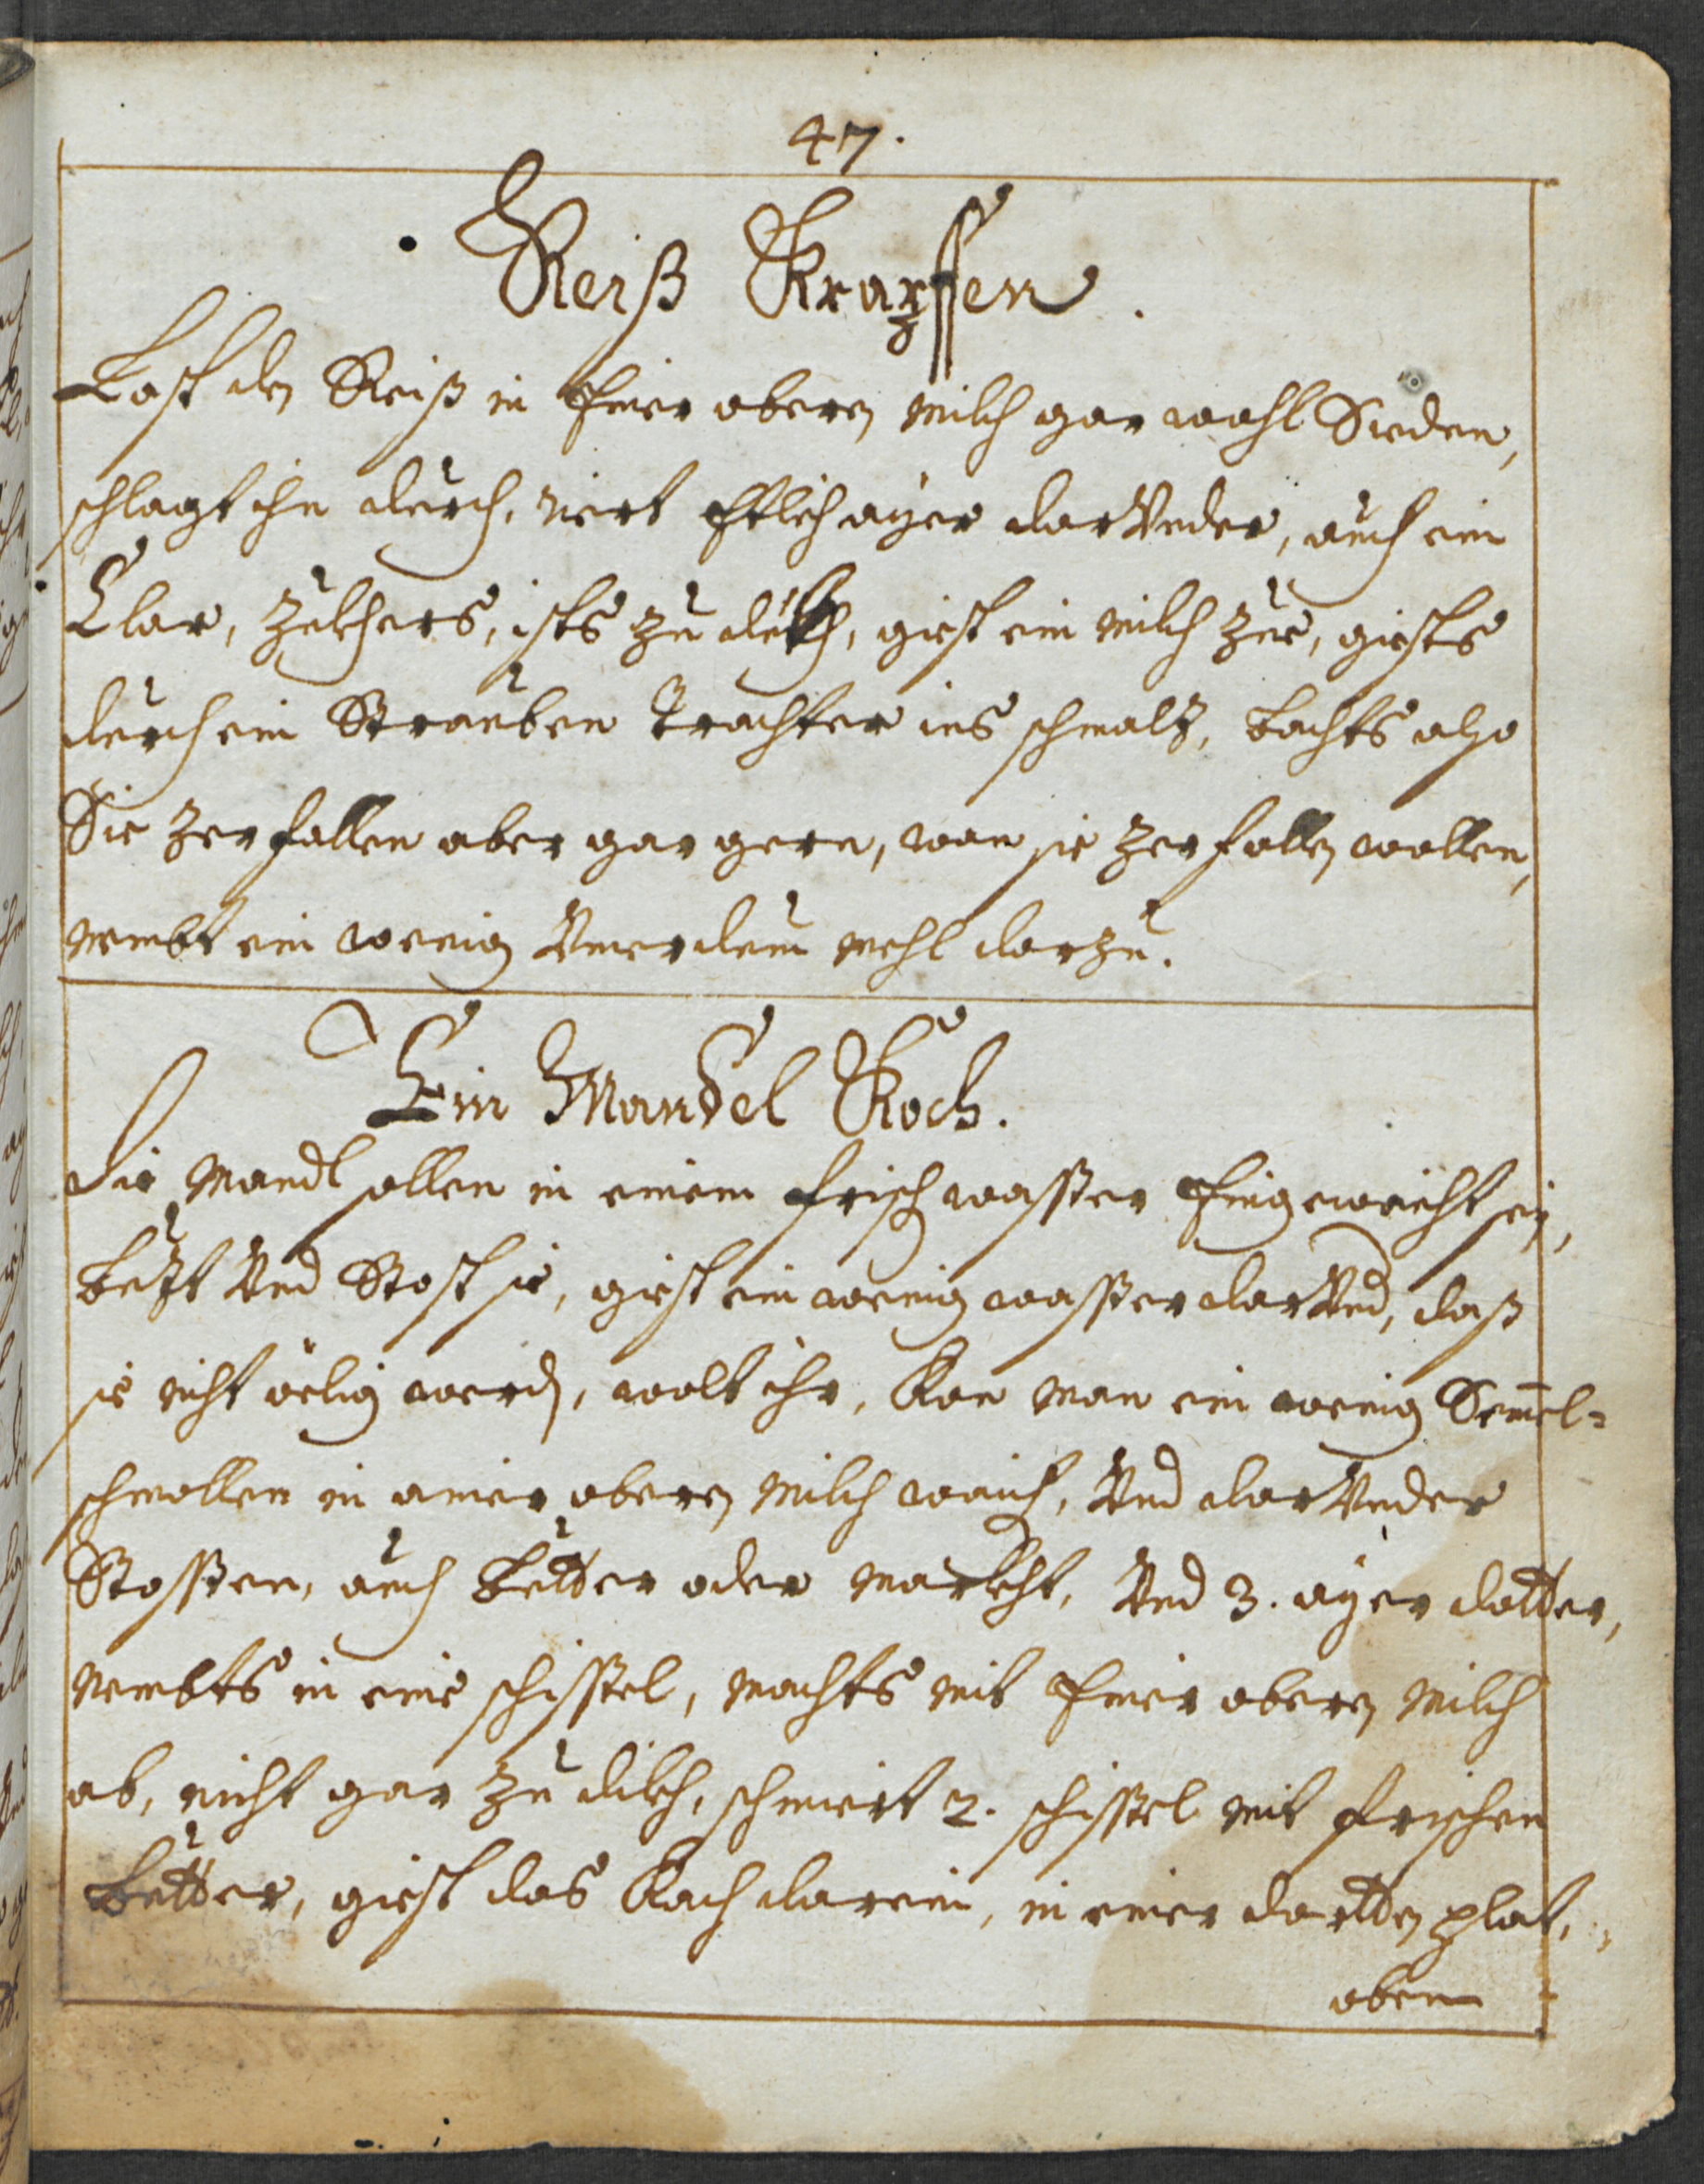 47.
Reiß Krapffen.
Last den Reiß in einer oberen milch gar wohl Sieden,
schlagt ihn durch, riert etlich ayer darUnder, auch ein
Clar, Zukhers, ists zu dükh, giest ein milch zue, giests
durch ein Strauben Trachter ins schmalz, bachts also
Sie zerfallen aber gar gern, wan sie zerfallen wollen,
nembt ein wenig Umerdum mehl darzu.
Ein Mandel Koch.
Die Mandl sollen in einem frisch wasser Eingeweicht sein,
buzt Und Stost sie, giest ein wenig wasser darUnd, daß
sie nicht öelig werden, wolt ihr, kan man ein wenig Sem̄el=
schmollen in ainer oberen milch waich, Und darUnder
Stossen, auch Butter oder markht, Und 3. ayer dotter,
nembts in eine schissel, machts mit einer oberen milch
ab, nicht gar zu dikh, schmiert 2. schissel mit frischen
Butter, giest das Koch darein, in einer dartten plat,
oben